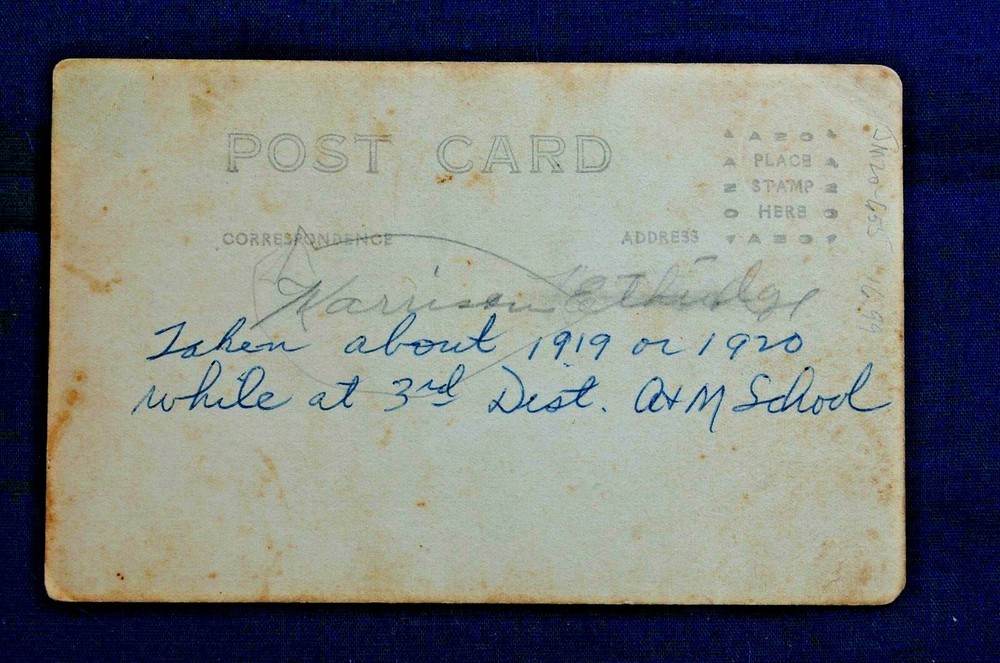 POST CARD
AZO
PLACE
STAMP
HERE
AZO
CORRESPONDENCE
ADDRESS
Harrison Ethridge
Taken about 1919 or 1920
while at 3rd Dist. A+M School
16.99